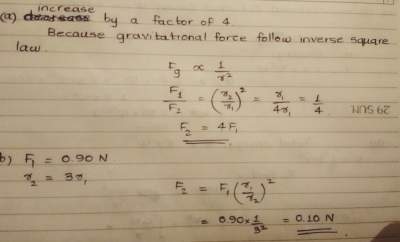 increase
(a) decrease by a factor of 4.
Because gravitational force follow inverse square
law.
Fg ∝ 1/r²
F₁/F₂ = (r₂/r₁)² = r₁/4r₁ = 1/4
F₂ = 4F₁
29 SUN
b) F₁ = 0.90 N
r₂ = 3r₁
F₂ = F₁(r₁/r₂)²
= 0.90 × 1/3² = 0.10 N